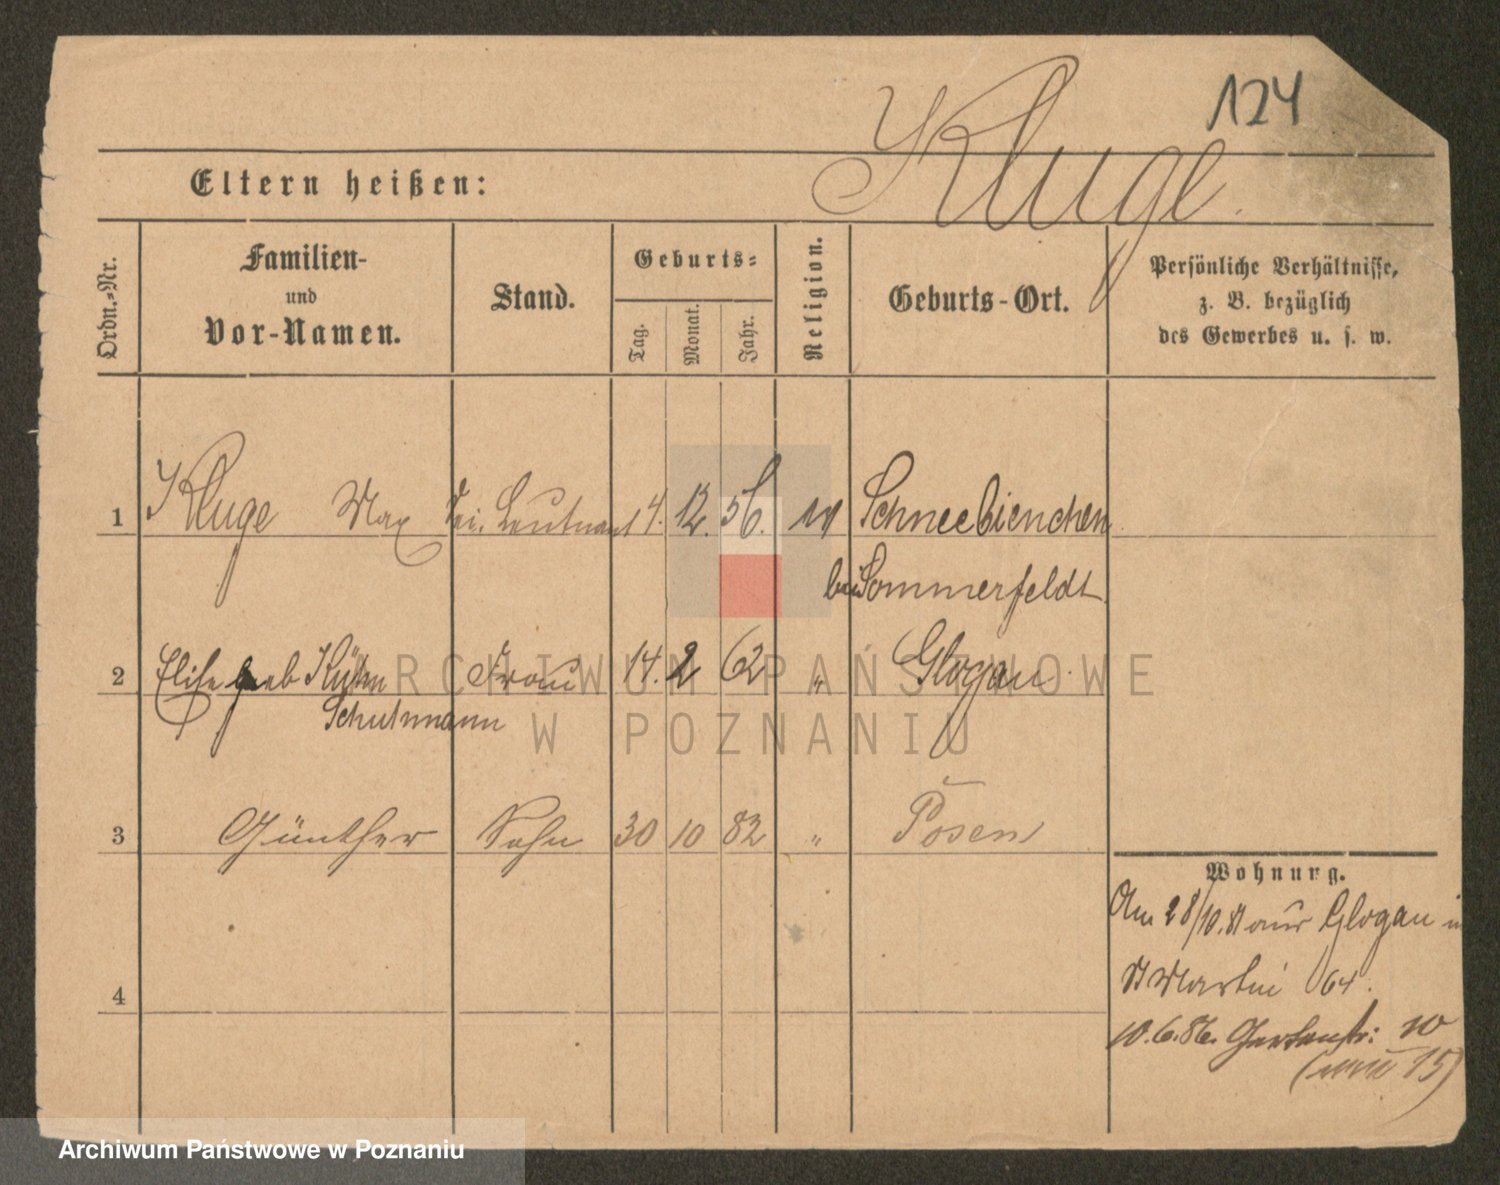 124
Kluge.
Eltern heißen:
Ordn.-Nr.
Familien-
und
Vor-Namen.
Stand.
Geburts-
Tag.
Monat.
Jahr.
Religion.
Geburts-Ort.
Persönliche Verhältnisse,
z. B. bezüglich
des Gewerbes u. s. w.
1 Kluge Max Leutnant 4. 12. 56. Schneebienchen
bei Sommerfeldt
2 Elise geb Kühn Frau 14. 2 62 " Glogau.
Schulmann
3 Günther Sohn 30 10 82 " Posen
4
Wohnung.
Am 28/10.81 aus Glogau in
St Martin 64.
10.6.86. Gartenstr: 10
(neu 15)
ARCHIWUM PAŃSTWOWE
W POZNANIU
Archiwum Państwowe w Poznaniu